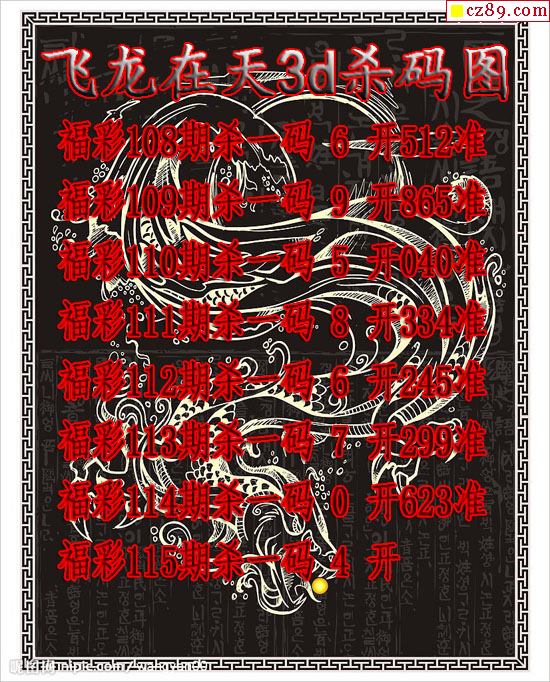 cz89.com
飞龙在天3d杀码图
福彩108期杀一码 6 开512准
福彩109期杀一码 9 开865准
福彩110期杀一码 5 开040准
福彩111期杀一码 8 开334准
福彩112期杀一码 6 开245准
福彩113期杀一码 7 开299准
福彩114期杀一码 0 开623准
福彩115期杀一码 4 开